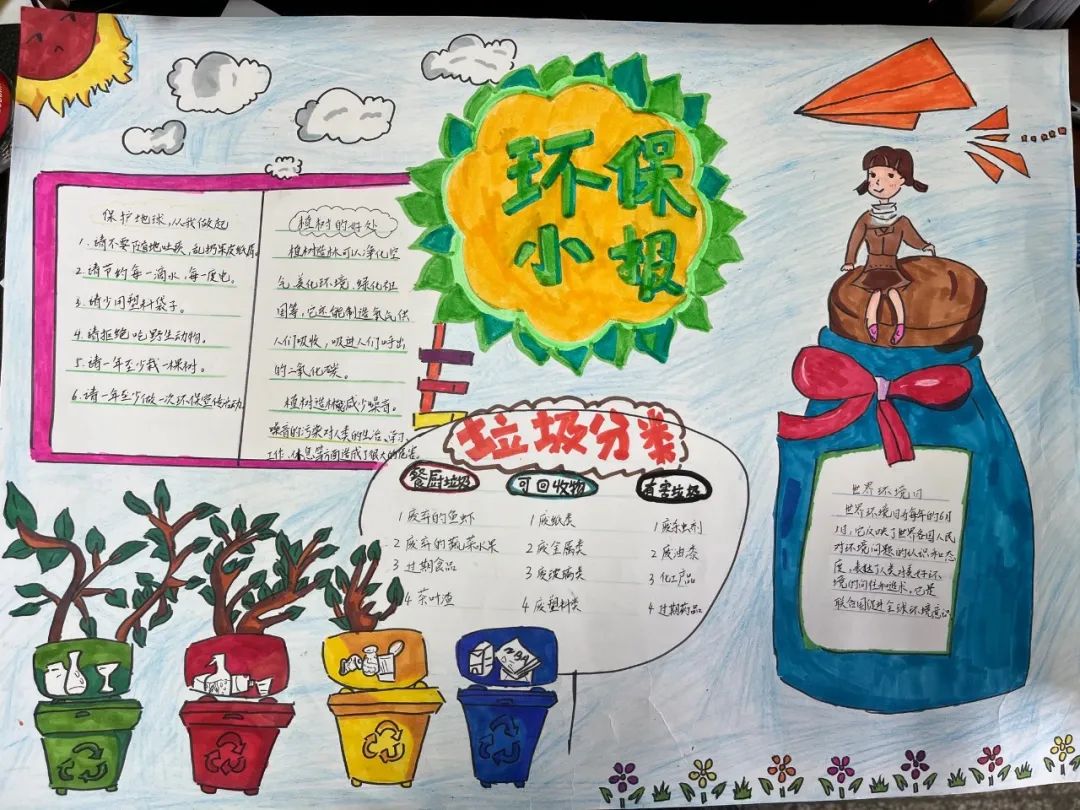 环保
小报
保护地球,从我做起
1.请不要随地吐痰,乱扔果皮纸屑。
2.请节约每一滴水,每一度电。
3.请少用塑料袋子。
4.请拒绝吃野生动物。
5.请一年至少栽一棵树。
6.请一年至少做一次环保宣传活动
植树的好处
植树造林可以净化空
气、美化环境、绿化祖
国等,它还能制造氧气供
人们吸收,吸进人们呼出
的二氧化碳。
植树造林能减少噪音。
噪音的污染对人类的生活、学习、
工作、休息等方面造成了很大的危害。
垃圾分类
餐厨垃圾
1 废弃的鱼虾
2 废弃的蔬菜水果
3 过期食品
4 茶叶渣
可回收物
1 废纸类
2 废金属类
3 废玻璃类
4 废塑料类
有害垃圾
1 废杀虫剂
2 废油漆
3 化工产品
4 过期药品
世界环境日
世界环境日为每年的6月
5日,它反映了世界各国人民
对环境问题的认识和态
度,表达了人类对美好环
境的向往和追求。它是
联合国促进全球环境意识